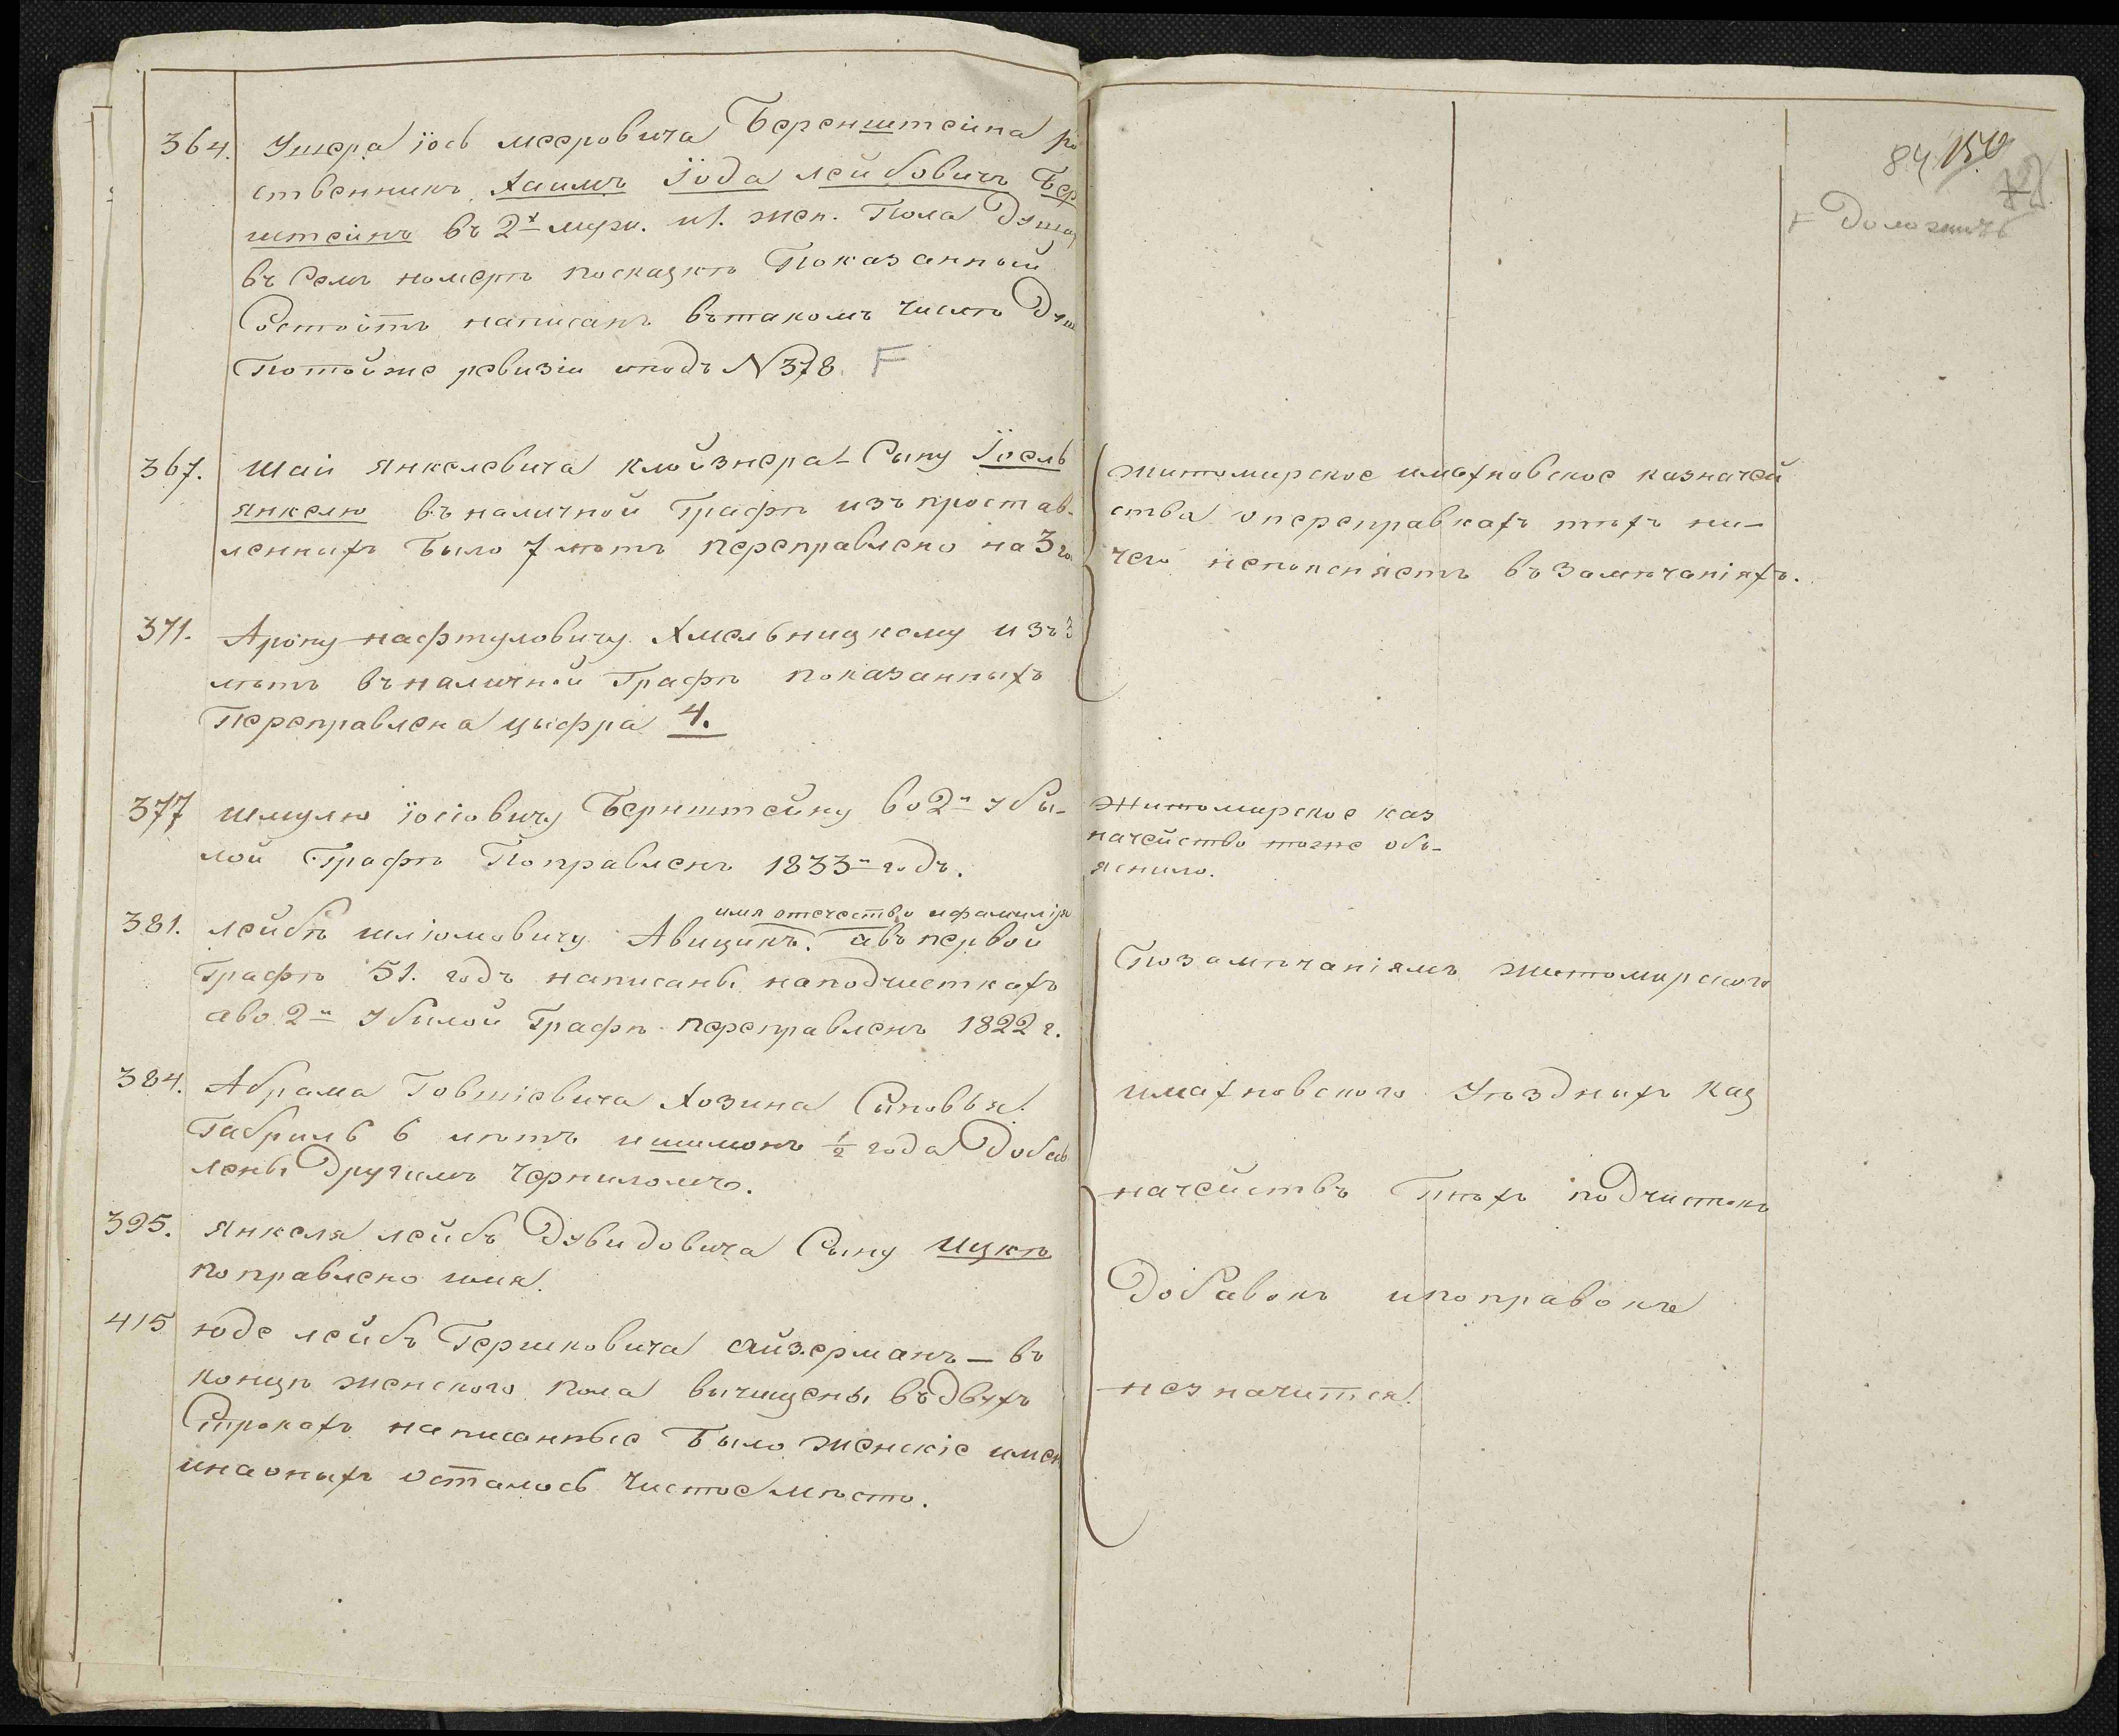 364. Ушера Iось Мееровича Беренштейна ро
ственникъ Хаимъ Iода Лейбовичъ Бер
штейнъ въ 2х муж. и 1. жен. Пола Душа
въ семъ номерѣ по сказкѣ Показанный
Состоитъ написанъ въ такомъ числѣ Душ
По той же ревизіи и подъ N 378. F
367. Шаи Янкелевича Клойзнера Сыну Iосль
Янкелю въ наличной Графѣ изъ простав-
ленныхъ было 7 лѣтъ переправлено на 3 го
371. Арону Нафтуловичу Хмельницкому изъ 3
лѣтъ въ наличной Графѣ показанныхъ
Переправлена цыфра 4.
377 Шмулю Iосіовичу Бернштейну во 2й убы-
лой Графѣ Поправленъ 1833й годъ.
имя отечество и фамилія
381. Лейбѣ Шліомовичу Авицинъ. а въ первой
Графѣ 51. годъ написаны на подчисткахъ
а во 2й убылой Графѣ переправленъ 1822 г.
384. Абрама Говшіевича Хозина Сыновья
Габриль 6 лѣтъ и Шимонъ ½ года Добав
лены Другимъ Черниломъ.
395. Янкеля Лейбъ Дувидовича Сыну Ицкѣ
поправлено имя.
415 Юде Лейбъ Гершковича Айзерманъ — въ
концѣ женского пола вычищены въ двухъ
Строкахъ написанные было женскіе имен
и на оныхъ осталось Чистое мѣсто.
84 150
72
F Доложить
Житомирское и Махновское казначей
ства о переправкахъ тѣхъ ни-
чего непоясняетъ въ замѣчаніяхъ.
Житомирское каз
начейство тоже объ-
яснило.
По замѣчаніямъ Житомирского
и Махновского Уѣздныхъ Каз
начействъ Тѣхъ подчистокъ
Добавокъ и поправокъ
незначится.